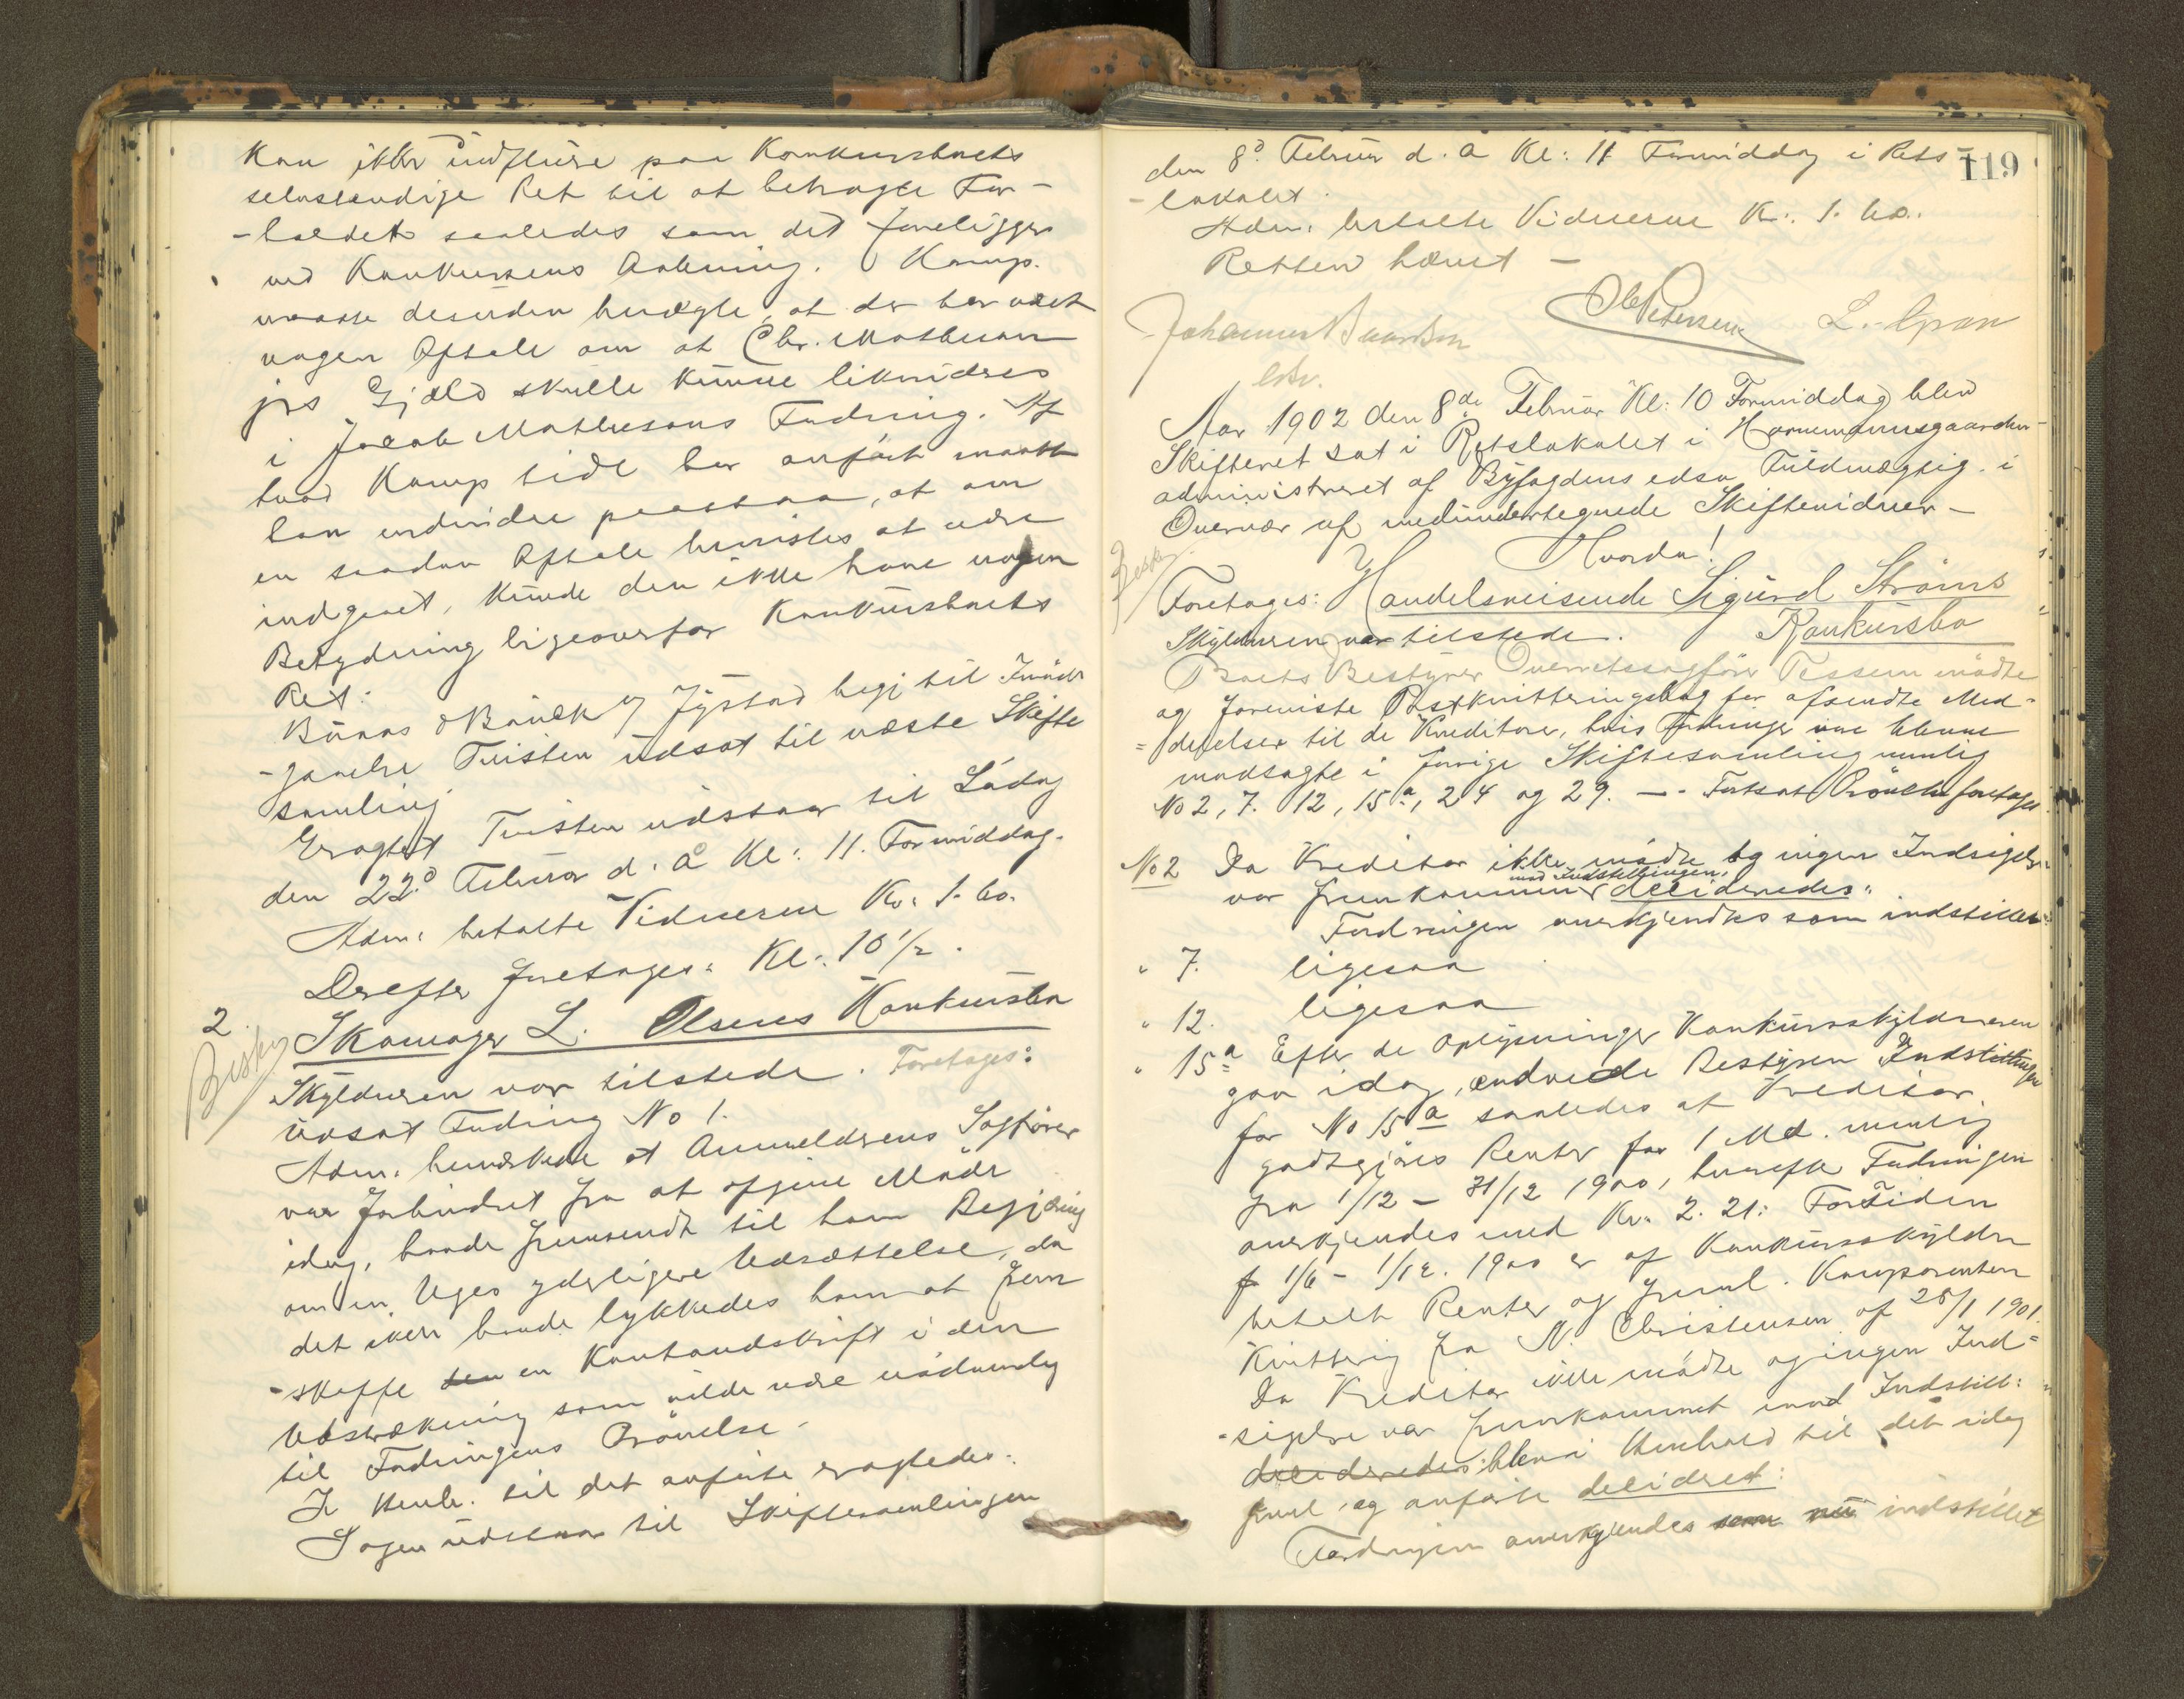 kan ikke indflüere paa Konkursboets
selvstændige Ret til at betragte For-
-holdet saaledes som det foreligger
ved Konkursens Aabning. Komp.
maatte desuden benægte, at der har været
nogen Aftale om at Chr. Mathisen
jrs Gjæld skulle kunne likvideres
i Jacob Mathisens Fordring. Af
hvad Komp sidt har anført maatte
han endvidere paastaa, at om
en saadan Aftale bevistes at være
indgaaet, kunde den ikke have nogen
Betydning ligeoverfor Konkursboets
Ret:
og Jystad begj til Imöde
-gaaelse Tvisten udsat til næste Skifte
samling
Eragtet Tvisten udstaar til Lödag
den 22d Februar d. A Kl: 11. Formiddag.
Adm: betalte Vidnerne Kr. 1.60.
Derefter foretages: Kl: 10 1/2.
2. Skomager L. Olsens Konkursbo
Beskr
Skyldneren var tilstede. Foretages:
Udsat Fordring No 1.
Adm. bemærkede at Anmelderens Sagförer
var forhindret fra at afgive Möde
idag, havde fremsendt til ham Begjæring
om en Uges yderligere Udsættelse, da
det ikke havde lykkedes ham at frem
-skaffe den en Kontoudskrift i den
Udstrækning som vilde være nödvendig
til Fordringens Prövelse -
I Henh. til det anförte eragtedes:
Sagen udstaar til Skiftesamlingen
119
den 8d Februar d. A Kl: 11 Formiddag i Rets-
-lokalet.
Adm: betalte Vidnerne Kr. 1.60.
Retten hævet -
Ole Petersen
Johannes
L.
Aar 1902 den 8de Februar Kl: 10 Formiddag blev
Skifteret sat i Retslokalet i Hornemansgaarden
administreret af Byfogdens edsv Fuldmægtig i
Overvær af medundertegnede Skiftevidner -
Hvorda!
Beskr
Foretages: Handelsreisende Sigurd Ströms
Konkursbo
Skyldneren var tilstede.
Boets Bestyrer Overretssagförer Tessem mödte
og foreviste Postkvitteringsbog for afsendte Med-
=delelser til de Kreditorer, hvis Fordringer var blevne
modsagte i forrige Skiftesamling nemlig
No 2, 7. 12, 15a, 24 og 29. -- Fortsat Pröven foretages
No 2 Da Kreditor ikke mödte og ingen Indsigelse
mod Indstillingen,
var fremkommen decideredes:
Fordringen anerkjendtes som indstillet:
" 7. ligesaa
" 12. ligesaa
" 15a Efter de Oplysninger Konkursskyldneren
gav idag, ændrede Bestyren Indstillingen
for No 15a saaledes at Kreditor
godtgjöres Renter for 1 Md. nemlig
fra 1/12 - 31/12 1900, hvorefter Fordringen
anerkjendes med Kr. 2.21: For Tiden
f 1/6 - 1/12. 1900 er af Konkursskyldn
betalt Renter og freml. Komparenten
Kvittering fra N. Christensen af 28/1 1901.
Da Kreditor ikke mödte og ingen Ind=
-sigelse var fremkommet mod Indstill:
decideredes: blev i Henhold til det idag
freml og anförte decideret:
Fordringen anerkjendes som nu indstillet